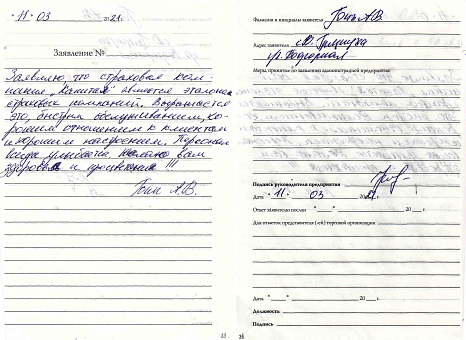 "11" 03 2021 г.
Заявление №
Заявляю, что страховая ком-
пания "Капитал" является эталоном
страховых компаний. Выражается
это, быстрым обслуживанием, хо-
рошим отношением к клиентам
и хорошим настроением. Персонал
всегда улыбается желаю вам
здоровья и процветания!!!
Гоин А.В.
25
Фамилия и инициалы заявителя Гоин А.В.
Адрес заявителя
Меры, принятые по заявлению администрацией предприятия:
Подпись руководителя предприятия
Дата "11" 03 2021 г.
Ответ заявителю послан " " 20 г.
Для отметок представителя (-ей) торговой организации
Дата " " 20 г.
Должность
Подпись
26